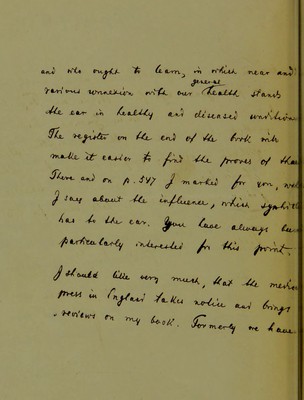 and who ought to learn, in which near and
general
various connexion with our health stands
the ear in healthy and diseased condition
The register on the end of the book will
make it easier to find the proves of that
There and on p. 547 I marked for you, what
I say about the influence, which syphilis
has to the ear. You have always been
particularly interested for this point.
I should like very much, that the medical
press in England takes notice and brings
reviews on my book. Formerly we have